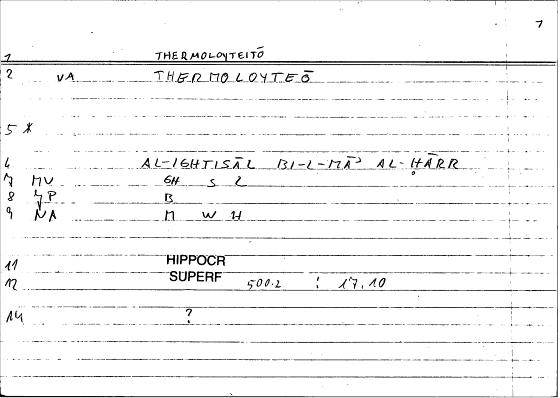 7
1 THERMOLOYTEITŌ
2 VA THERMOLOYTEŌ
5 *
6 AL-IGHTISĀL BI-L-MĀʾ AL-ḤĀRR
7 MV GH S L
8 YP B
9 NA M W H
11 HIPPOCR
12 SUPERF 500.2 : 17.10
14 ?